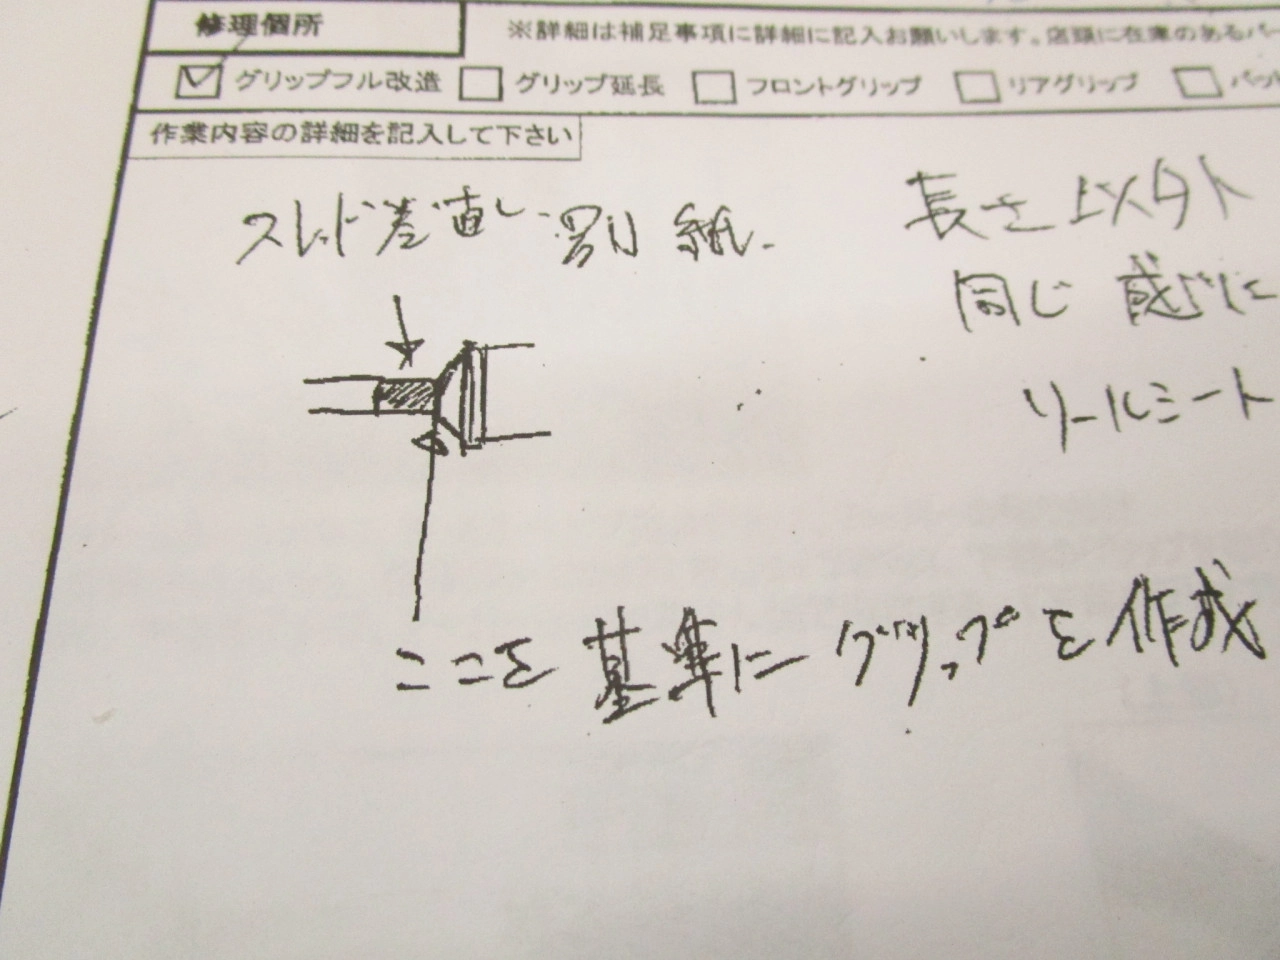 修理個所
※詳細は補足事項に詳細に記入お願いします。店頭に在庫のあるパー
グリップフル改造 グリップ延長 フロントグリップ リアグリップ
作業内容の詳細を記入して下さい
スレッド巻直し 割り
長さ以外
同じ感じに
リールシート
ここを基準にグリップを作成